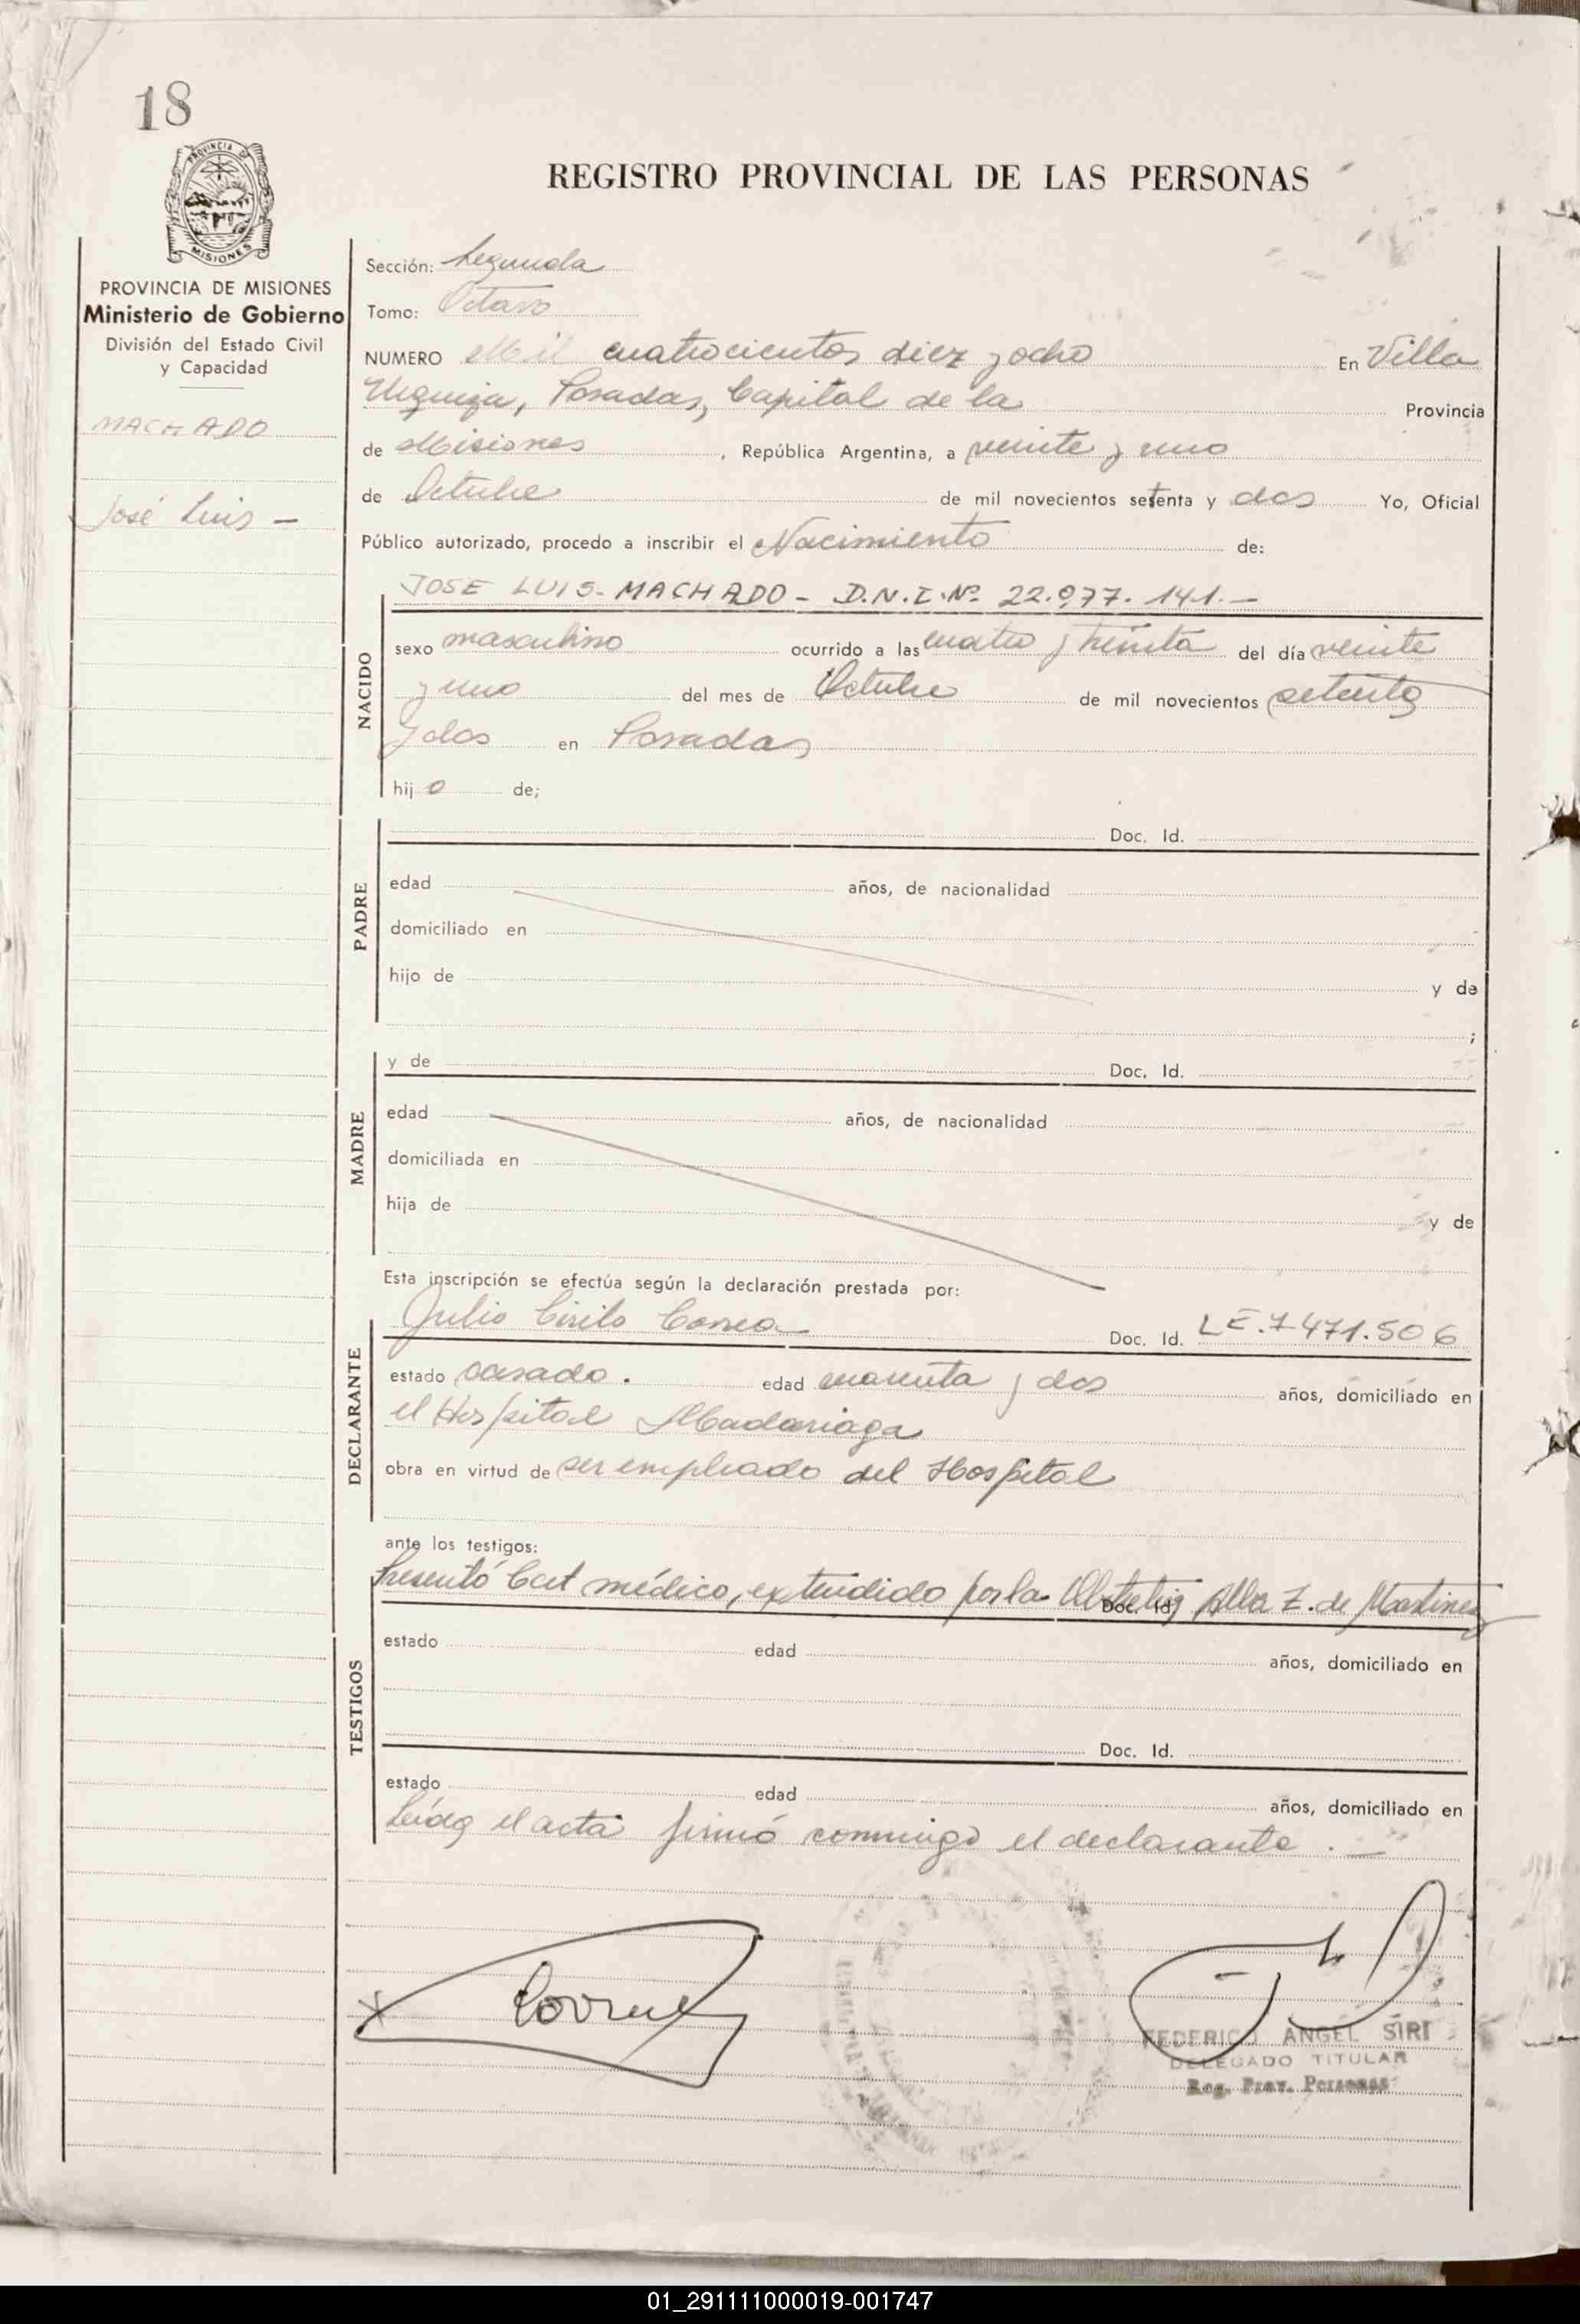 18
PROVINCIA DE
MISIONES
REGISTRO PROVINCIAL DE LAS PERSONAS
PROVINCIA DE MISIONES
Ministerio de Gobierno
División del Estado Civil
y Capacidad
MACHADO
José Luis -
Sección: Segunda
Tomo: Octavo
NUMERO Mil cuatrocientos diez y ocho En Villa
Urquiza, Posadas, Capital de la Provincia
de Misiones, República Argentina, a veinte y uno
de Octubre de mil novecientos setenta y dos Yo, Oficial
Público autorizado, procedo a inscribir el Nacimiento de:
JOSE LUIS - MACHADO - D.N.I. Nº 22.977.141.-
NACIDO
sexo masculino ocurrido a las cuatro y treinta del día veinte
y uno del mes de Octubre de mil novecientos setenta
y dos en Posadas
hijo de;
PADRE
Doc. Id.
edad años, de nacionalidad
domiciliado en
hijo de y de
;
MADRE
y de Doc. Id.
edad años, de nacionalidad
domiciliada en
hija de y de
Esta inscripción se efectúa según la declaración prestada por:
DECLARANTE
Julio Cirilo Correa Doc. Id. LE.7471.506
estado casado. edad cuarenta y dos años, domiciliado en
el Hospital Madariaga
obra en virtud de ser empleado del Hospital
ante los testigos:
TESTIGOS
Presentó Cert médico, extendido por la Obstetriz Alba Z. de Martinez Doc. Id.
estado edad años, domiciliado en
Doc. Id.
estado edad años, domiciliado en
Leída el acta firmó conmigo el declarante. -
FEDERICO ANGEL SIRI
DELEGADO TITULAR
Reg. Prov. Personas
01_291111000019-001747